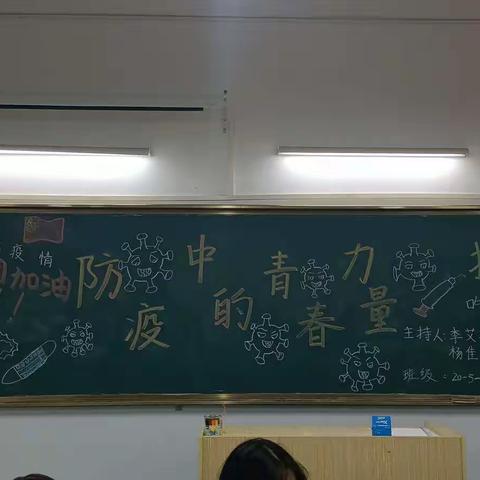 疫情
加油!
防疫中的青春力量
主持人:李艾
杨佳
班级:20-5-